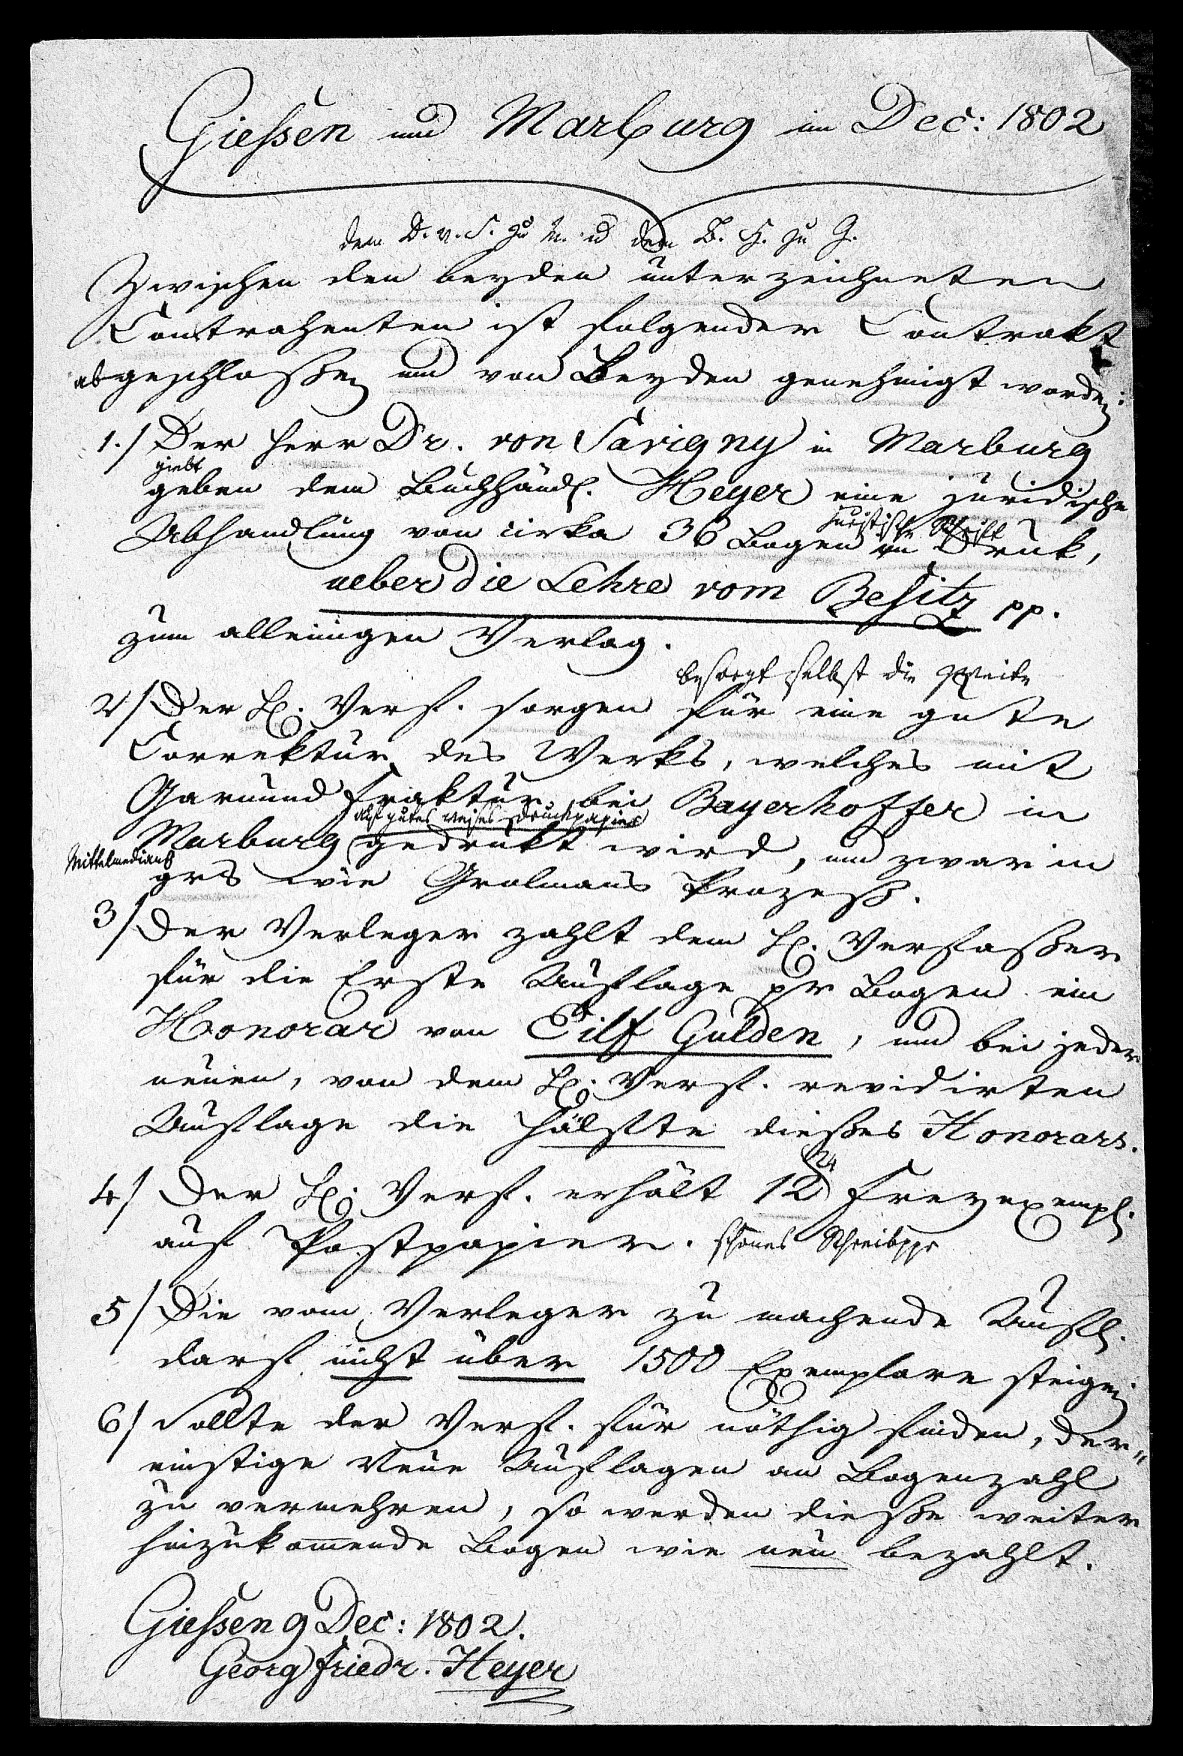 Giessen und Marburg im Dec: 1802
dem D. v. S. zu M. u dem B. H. zu G.
Zwischen den beyden unterzeichneten
Contrahenten ist folgender Contrakt
abgeschlossen und von Beyden genehmigt worden:
1./ Der Herr Dr. von Savigny in Marburg
giebt
geben dem Buchhändl. Heyer eine juridische
juristische Schrift
Abhandlung von cirka 36 Bogen in Druk,
ueber die Lehre vom Besitz pp.
zum alleinigen Verlag.
besorgt selbst die zweite
2/ Der H. Verf. sorgen für eine gute
Correktur des Werks, welches mit
Garmund Fraktur bei Bayerhoffer in
auf gutes weises Druckpapier
Marburg gedrukt wird, und zwar in
Mittelmedian
gr8 wie Grolmans Prozess.
3/ Der Verleger zahlt dem H. Verfasser
für die Erste Auflage pr Bogen ein
Honorar von Eilf Gulden, und bei jeder
neuen, von dem H. Verf. revidirten
Auflage die Hälfte dieses Honorars.
24
4/ Der H. Verf. erhält 12 Freyexempl.
auf Postpapier. schönes Schreibppr
5/ Die vom Verleger zu machende Aufl.
darf nicht über 1500 Exemplare steigen
6/ Sollte der Verf. für nöthig finden, der-
einstige Neue Auflagen an Bogenzahl
zu vermehren, so werden diese weiter
hinzukommende Bogen wie neu bezahlt.
Giessen 9 Dec: 1802.
Georg Friedr. Heyer